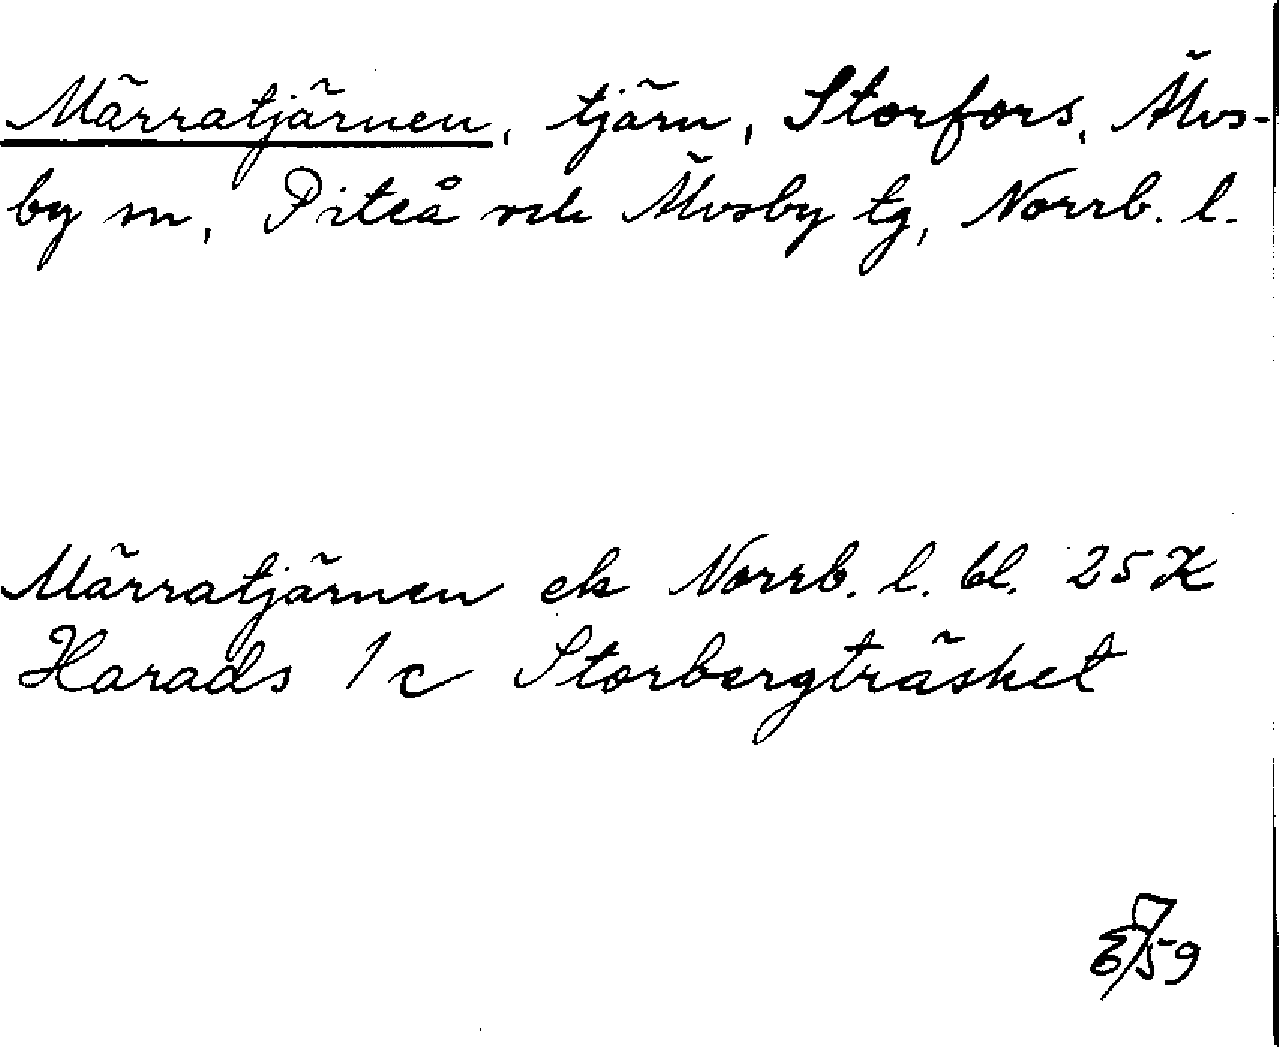 Märratjärnen, tjärn, Storfors, Älvs-
by sn, Piteå och Älvsby tg, Norrb. l.
Märratjärnen ek Norrb. l. bl. 25 K
Harads 1 c Storbergträsket
59